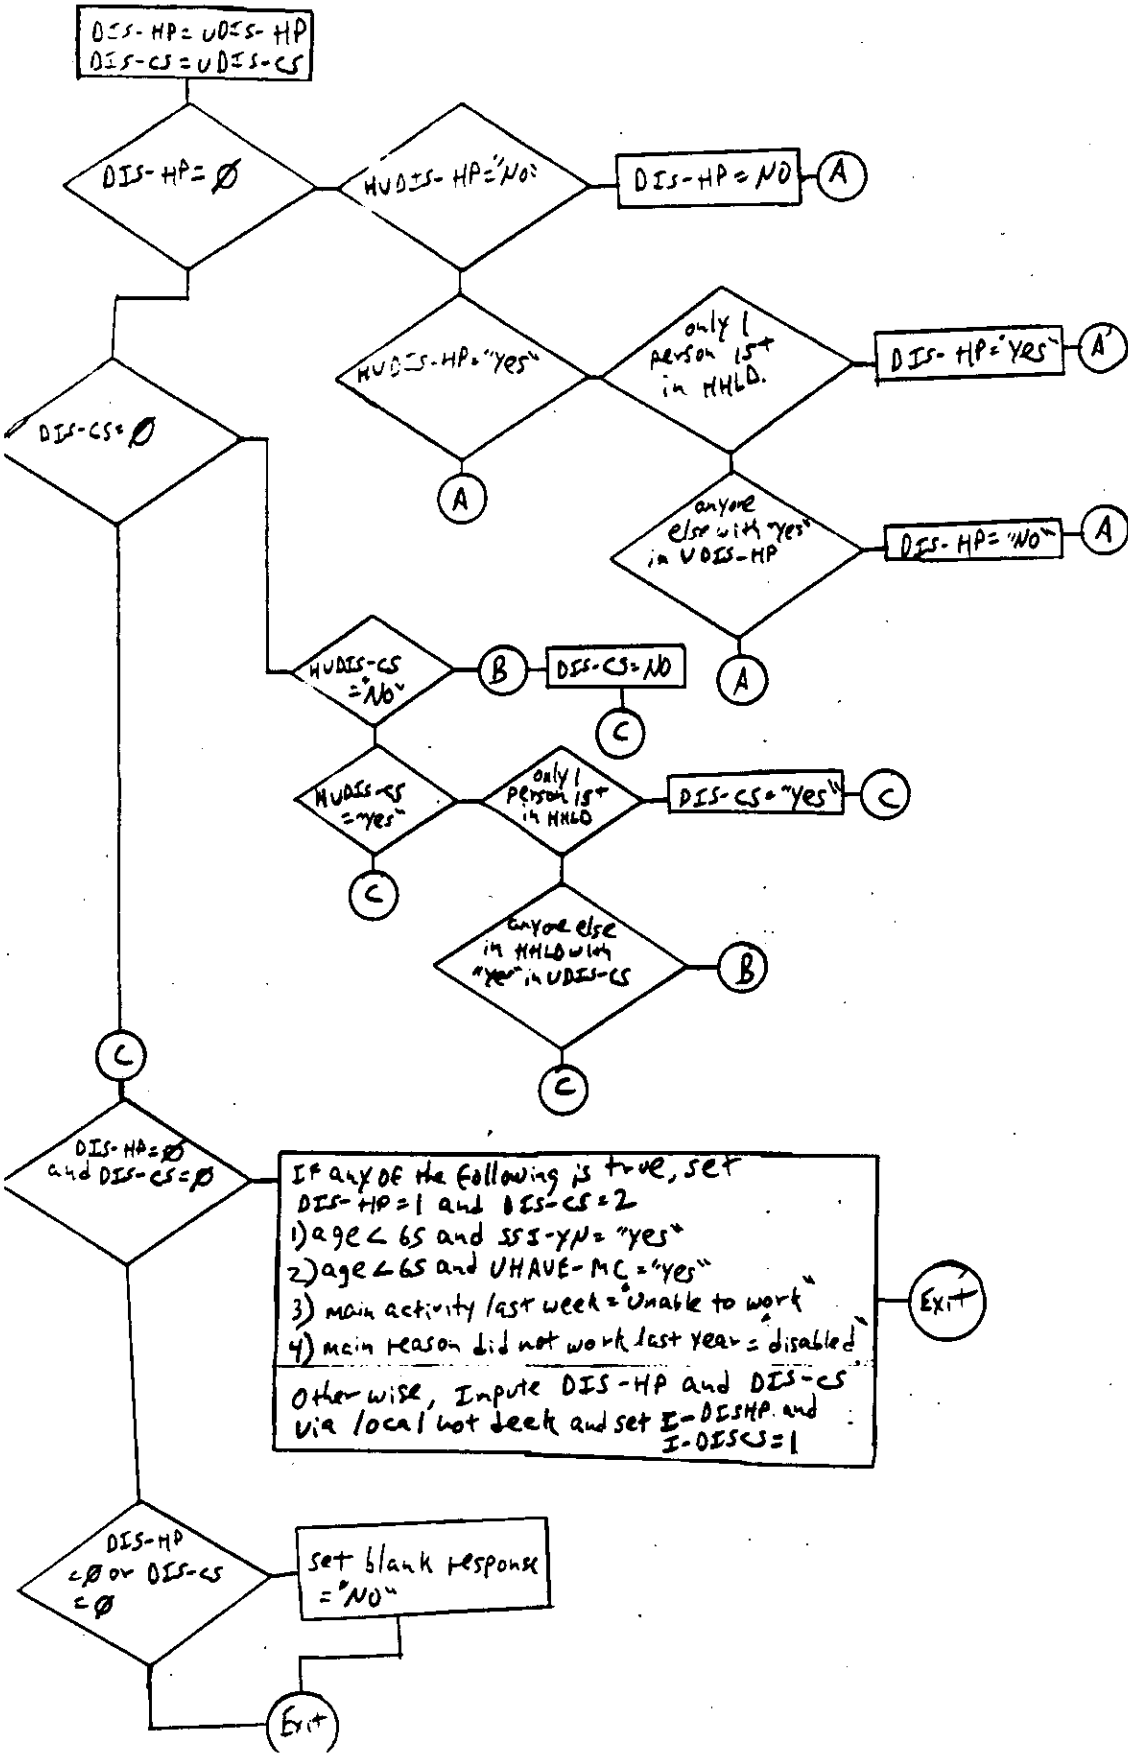 DIS-HP = UDIS-HP
DIS-CS = UDIS-CS
DIS-HP = Ø
HUDIS-HP="No"
DIS-HP = NO
A
HUDIS-HP="Yes"
only 1
person 15+
in HHLD.
DIS-HP="Yes"
A
DIS-CS=Ø
A
anyone
else with "Yes"
in UDIS-HP
DIS-HP="No"
A
A
HUDIS-CS
="No"
B
DIS-CS=NO
C
HUDIS-CS
="Yes"
only 1
person 15+
in HHLD
DIS-CS="Yes"
C
C
anyone else
in HHLD with
"Yes" in UDIS-CS
B
C
C
DIS-HP=Ø
and DIS-CS=Ø
If any of the following is true, set
DIS-HP=1 and DIS-CS=2
1) age < 65 and SSI-YN= "Yes"
2) age < 65 and UHAVE-MC="Yes"
3) main activity last week="Unable to work"
4) main reason did not work last year="disabled"
Otherwise, Impute DIS-HP and DIS-CS
via local hot deck and set I-DISHP and
I-DISCS=1
Exit
DIS-HP
=Ø or DIS-CS
=Ø
set blank response
="NO"
Exit